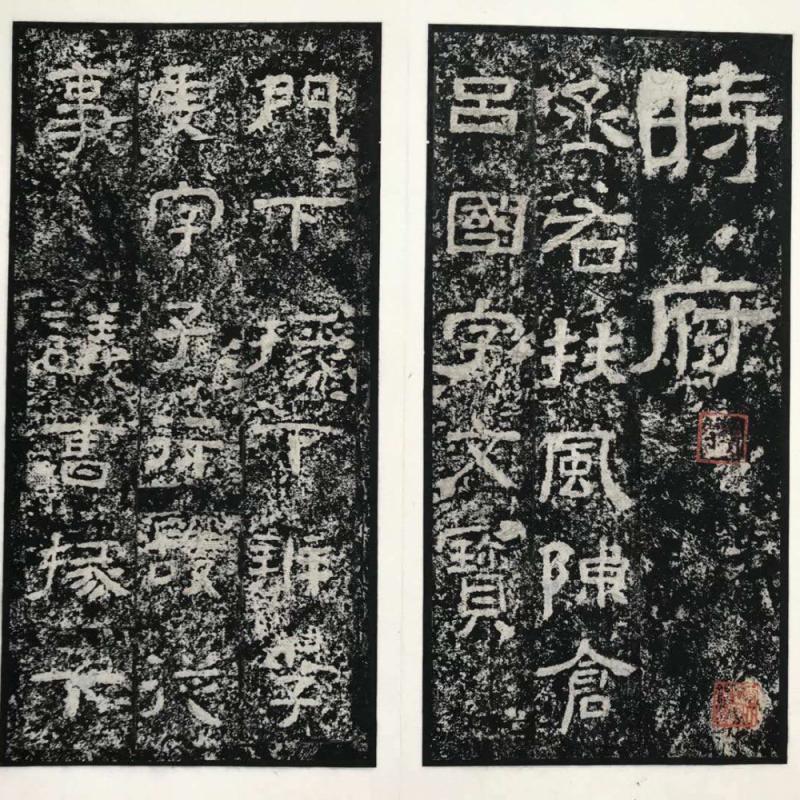 時府
丞右扶風陳倉
呂國字文寶
門下掾下辨李
虔字子行從
事 議曹掾下